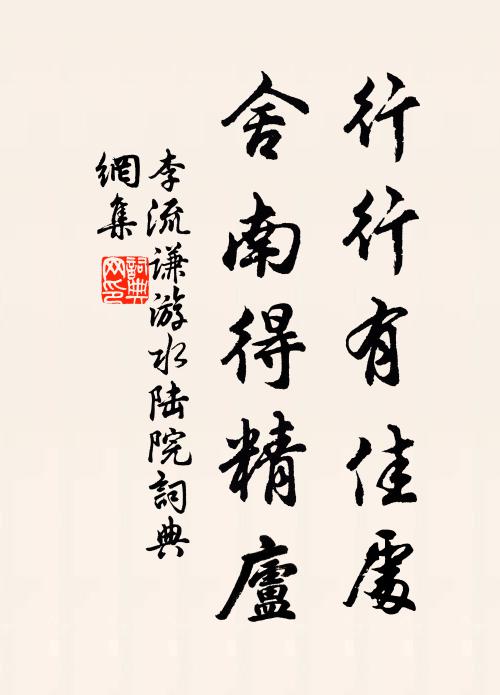 行行有佳處
舍南得精廬
李流谦游水陆院詞典
網集
詞典網印